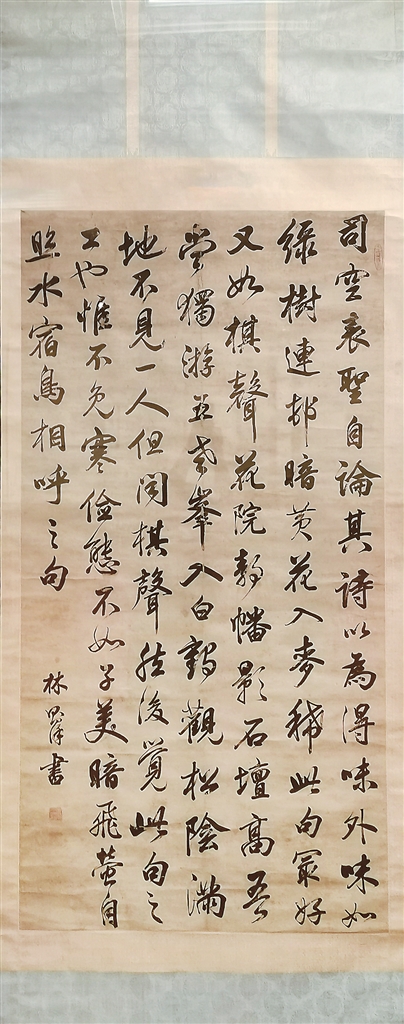 司空表聖自論其詩以為得味外味如
綠樹連邨暗黃花入麥稀此句冣好
又如棋聲花院靜幡影石壇高吾
嘗獨游五老峯入白鶴觀松陰滿
地不見一人但聞棋聲然後覺此句之
工也惟不免寒儉態不如子美暗飛螢自
照水宿鳥相呼之句
林書